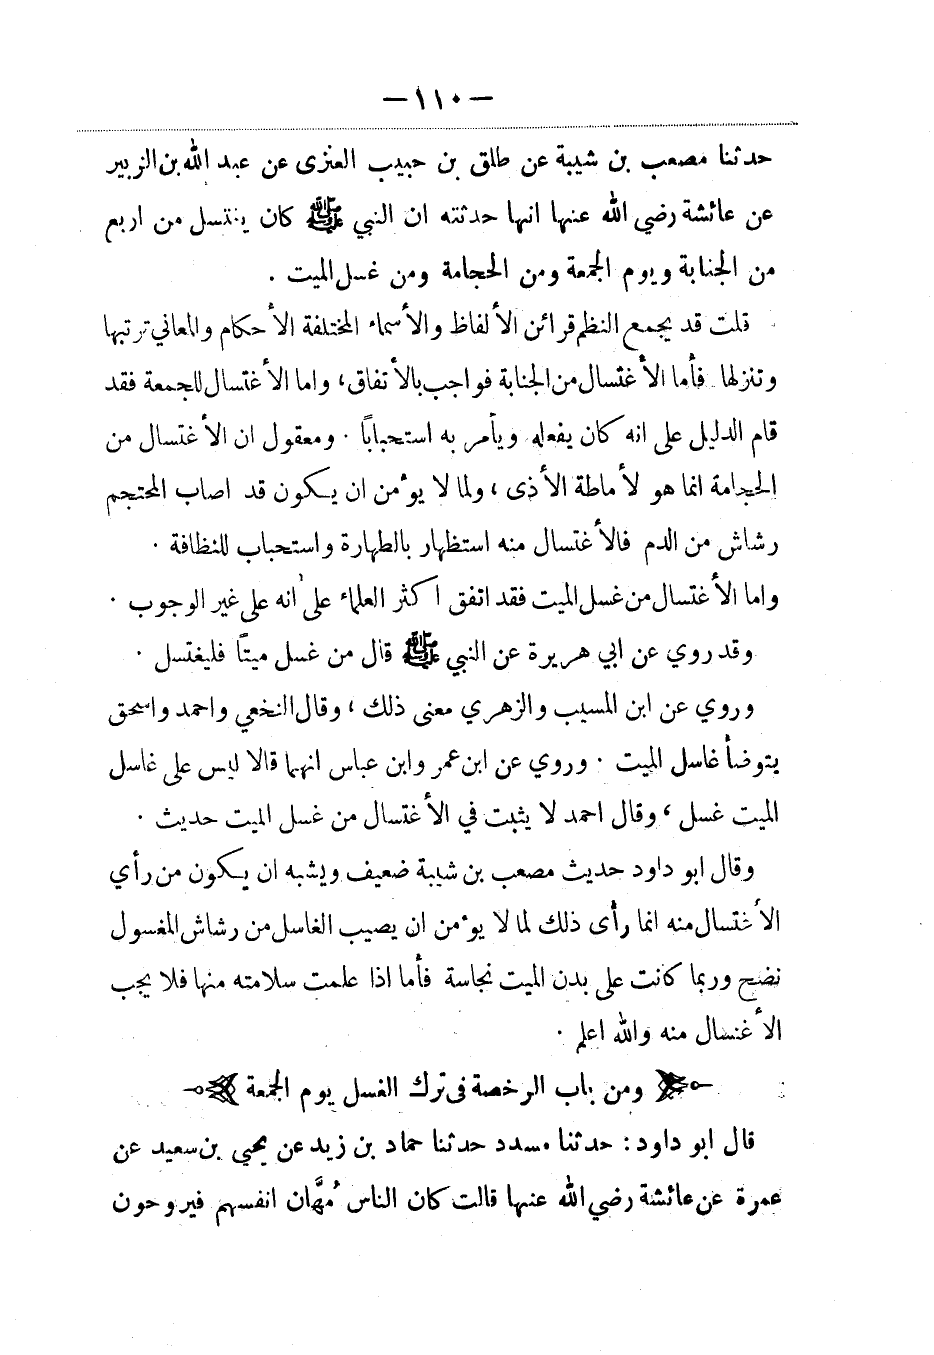 — ١١٠ —
حدثنا مصعب بن شيبة عن طلق بن حبيب العنزى عن عبد الله بن الزبير
عن عائشة رضي الله عنها انها حدثته ان النبي ﷺ كان يغتسل من اربع
من الجنابة ويوم الجمعة ومن الحجامة ومن غسل الميت .
قلت قد يجمع النظم قرائن الألفاظ والأسماء المختلفة الأحكام والمعاني ترتبها
وتنزلها فأما الأغتسال من الجنابة فواجب بالأتفاق، واما الأغتسال للجمعة فقد
قام الدليل على انه كان يفعله ويأمر به استحباباً . ومعقول ان الأغتسال من
الحجامة انما هو لأماطة الأذى، ولما لا يوءمن ان يكون قد اصاب المحتجم
رشاش من الدم فالأغتسال منه استظهار بالطهارة واستحباب للنظافة .
واما الأغتسال من غسل الميت فقد اتفق اكثر العلماء على أنه على غير الوجوب .
وقد روي عن ابي هريرة عن النبي ﷺ قال من غسل ميتاً فليغتسل .
وروي عن ابن المسيب والزهري معنى ذلك، وقال النخعي واحمد واسحق
يتوضأ غاسل الميت . وروي عن ابن عمر وابن عباس انهما قالا ليس على غاسل
الميت غسل، وقال احمد لا يثبت في الأغتسال من غسل الميت حديث .
وقال ابو داود حديث مصعب بن شيبة ضعيف ويشبه ان يكون من رأي
الأغتسال منه انما رأى ذلك لما لا يوءمن ان يصيب الغاسل من رشاش المغسول
نضح وربما كانت على بدن الميت نجاسة فأما اذا علمت سلامته منها فلا يجب
الأغتسال منه والله اعلم .
ومن باب الرخصة فى ترك الغسل يوم الجمعة
قال ابو داود : حدثنا مسدد حدثنا حماد بن زيد عن يحيي بن سعيد عن
عمرة عن عائشة رضي الله عنها قالت كان الناس مُهَّان انفسهم فيروحون